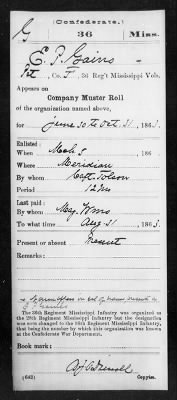 (Confederate.)
G 36 Miss.
E. P. Gains
Pvt, Co. I, 36 Reg't Mississippi Vols.
Appears on
Company Muster Roll
of the organization named above,
for June 30 to Oct. 31, 1863.
Enlisted:
When Mch 5, 186
Where Meridian
By whom Capt. Tolson
Period 12 Mos
Last paid:
By whom Maj. Wms
To what time Aug. 31, 1863.
Present or absent Present
Remarks:
The 36th Regiment Mississippi Infantry was organized as
the 28th Regiment Mississippi Infantry but the designation
was soon changed to the 36th Regiment Mississippi Infantry,
that being the number by which this organization was known
at the Confederate War Department.
Book mark:
(642) Copyist.